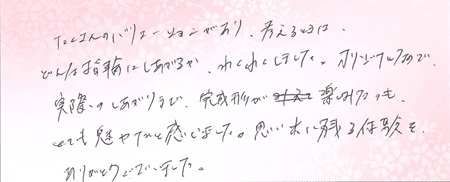 たくさんのバリエーションがあり、考えるときは、
どんな指輪にしあがるか、わくわくしました。オリジナルなので、
実際のしあがりまで、完成形が 楽しみなのも、
とても魅力的だと感じました。思い出に残る体験を、
ありがとうございました。